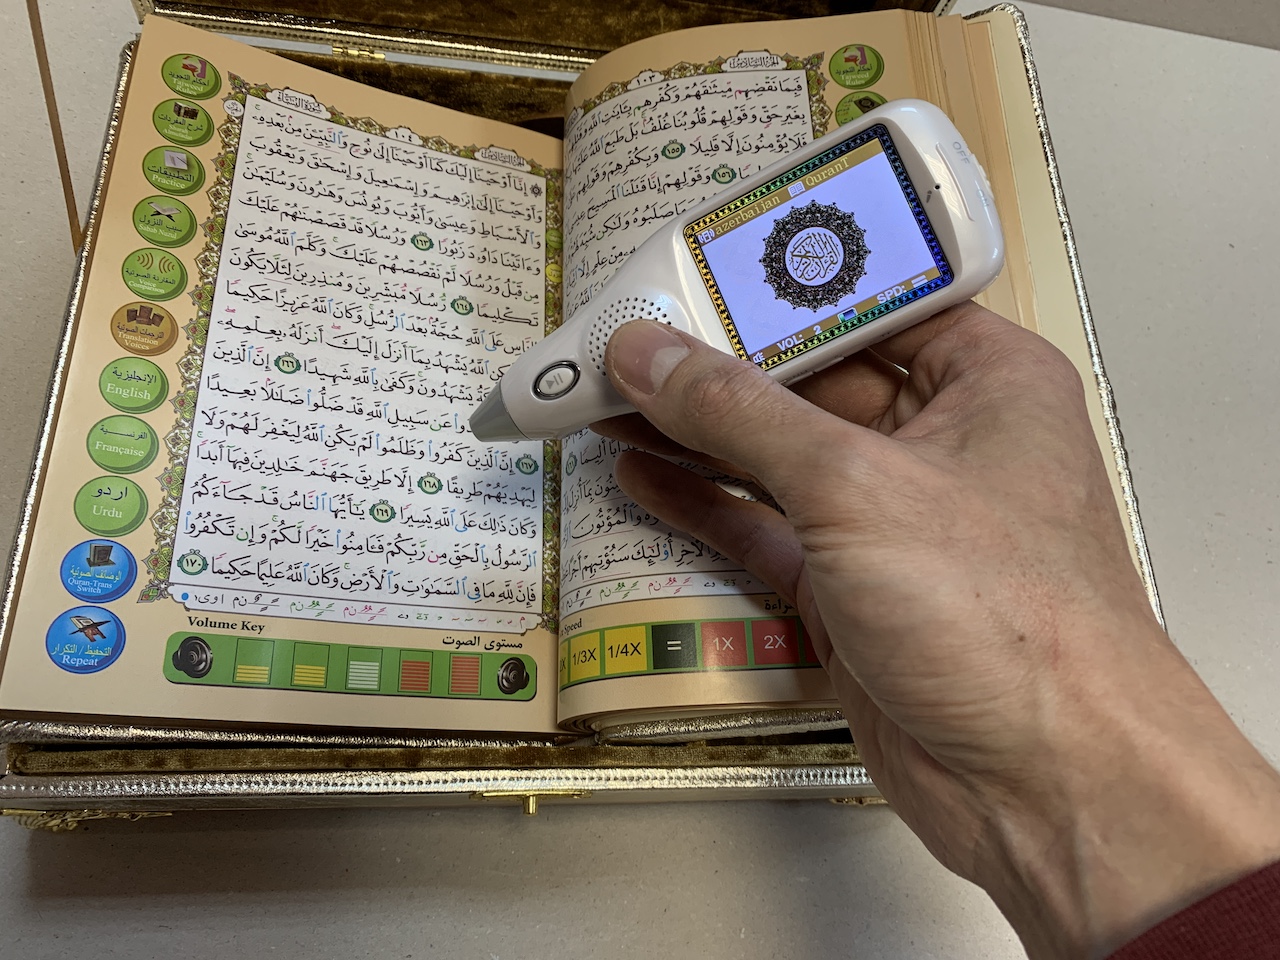 الجزء السادس
١٠٣
فَبِمَا نَقْضِهِم مِّيثَـٰقَهُمْ وَكُفْرِهِم بِـَٔايَـٰتِ ٱللَّهِ وَقَتْلِهِمُ
بِغَيْرِ حَقٍّ وَقَوْلِهِمْ قُلُوبُنَا غُلْفٌۢ بَلْ طَبَعَ ٱللَّهُ عَلَيْهَا
فَلَا يُؤْمِنُونَ إِلَّا قَلِيلًا ١٥٥ وَبِكُفْرِهِمْ وَقَوْلِهِمْ
١٥٦ وَقَوْلِهِمْ إِنَّا قَتَلْنَا ٱلْمَسِيحَ
صَلَبُوهُ وَلَـٰكِن شُبِّهَ
مِنْ عِلْمٍ إِلَّا
أَلِيمًا
بِمَآ أُنزِلَ
وَٱلْمُؤْتُونَ
ٱلْـَٔاخِرِ أُو۟لَـٰٓئِكَ سَنُؤْتِيهِمْ أَجْرًا
Speed
1/3X
1/4X
=
1X
2X
أحكام التجويد
Tajweed Rules
azerbaijan
QuranT
القرآن الكريم
VOL: 2
SPD:
OFF
سورة النساء
١٠٤
الجزء السادس
۞ إِنَّآ أَوْحَيْنَآ إِلَيْكَ كَمَآ أَوْحَيْنَآ إِلَىٰ نُوحٍ وَٱلنَّبِيِّـۧنَ مِنۢ بَعْدِهِۦ
وَأَوْحَيْنَآ إِلَىٰٓ إِبْرَٰهِيمَ وَإِسْمَـٰعِيلَ وَإِسْحَـٰقَ وَيَعْقُوبَ
وَٱلْأَسْبَاطِ وَعِيسَىٰ وَأَيُّوبَ وَيُونُسَ وَهَـٰرُونَ وَسُلَيْمَـٰنَ
وَءَاتَيْنَا دَاوُۥدَ زَبُورًا ١٦٣ وَرُسُلًا قَدْ قَصَصْنَـٰهُمْ عَلَيْكَ
مِن قَبْلُ وَرُسُلًا لَّمْ نَقْصُصْهُمْ عَلَيْكَ وَكَلَّمَ ٱللَّهُ مُوسَىٰ
تَكْلِيمًا ١٦٤ رُّسُلًا مُّبَشِّرِينَ وَمُنذِرِينَ لِئَلَّا يَكُونَ
لِلنَّاسِ عَلَى ٱللَّهِ حُجَّةٌۢ بَعْدَ ٱلرُّسُلِ وَكَانَ ٱللَّهُ عَزِيزًا حَكِيمًا
ٱللَّهُ يَشْهَدُ بِمَآ أَنزَلَ إِلَيْكَ أَنزَلَهُۥ بِعِلْمِهِۦ
يَشْهَدُونَ وَكَفَىٰ بِٱللَّهِ شَهِيدًا ١٦٦ إِنَّ ٱلَّذِينَ
عَن سَبِيلِ ٱللَّهِ قَدْ ضَلُّوا۟ ضَلَـٰلًۢا بَعِيدًا
١٦٧ إِنَّ ٱلَّذِينَ كَفَرُوا۟ وَظَلَمُوا۟ لَمْ يَكُنِ ٱللَّهُ لِيَغْفِرَ لَهُمْ وَلَا
لِيَهْدِيَهُمْ طَرِيقًا ١٦٨ إِلَّا طَرِيقَ جَهَنَّمَ خَـٰلِدِينَ فِيهَآ أَبَدًا
وَكَانَ ذَٰلِكَ عَلَى ٱللَّهِ يَسِيرًا ١٦٩ يَـٰٓأَيُّهَا ٱلنَّاسُ قَدْ جَآءَكُمُ
ٱلرَّسُولُ بِٱلْحَقِّ مِن رَّبِّكُمْ فَـَٔامِنُوا۟ خَيْرًا لَّكُمْ وَإِن تَكْفُرُوا۟
فَإِنَّ لِلَّهِ مَا فِى ٱلسَّمَـٰوَٰتِ وَٱلْأَرْضِ وَكَانَ ٱللَّهُ عَلِيمًا حَكِيمًا ١٧٠
Volume Key
مستوى الصوت
أحكام التجويد
Tajweed Rules
شرح المفردات
التطبيقات
Practice
سبب النزول
Sabab Nuzul
المقارنة الصوتية
Voice Comparison
الترجمات الصوتية
Translation Voices
الإنجليزية
English
الفرنسية
Française
اردو
Urdu
Quran-Trans Switch
التحفيظ / التكرار
Repeat